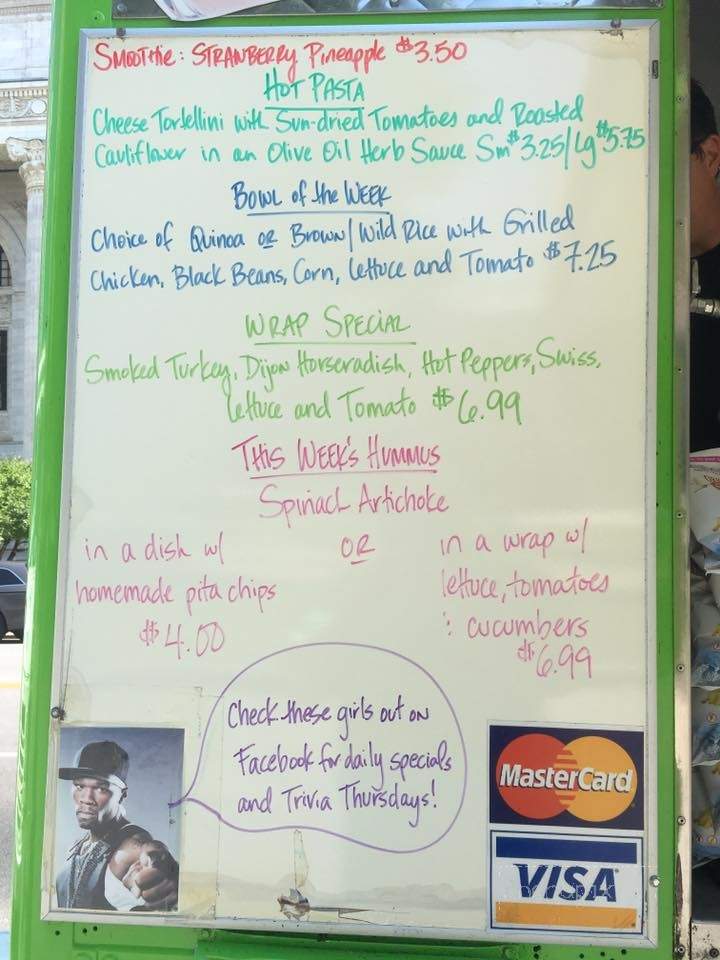 Smoothie: Strawberry Pineapple $3.50
Hot Pasta
Cheese Tortellini with Sun-dried Tomatoes and Roasted
Cauliflower in an Olive Oil Herb Sauce Sm $3.25/Lg $5.75
Bowl of the Week
Choice of Quinoa or Brown/Wild Rice with Grilled
Chicken, Black Beans, Corn, lettuce and Tomato $7.25
Wrap Special
Smoked Turkey, Dijon Horseradish, Hot Peppers, Swiss,
lettuce and Tomato $6.99
This Week's Hummus
Spinach Artichoke
in a dish w/
homemade pita chips
$4.00
OR
in a wrap w/
lettuce, tomatoes
: cucumbers
$6.99
Check these girls out on
Facebook for daily specials
and Trivia Thursdays!
MasterCard
VISA